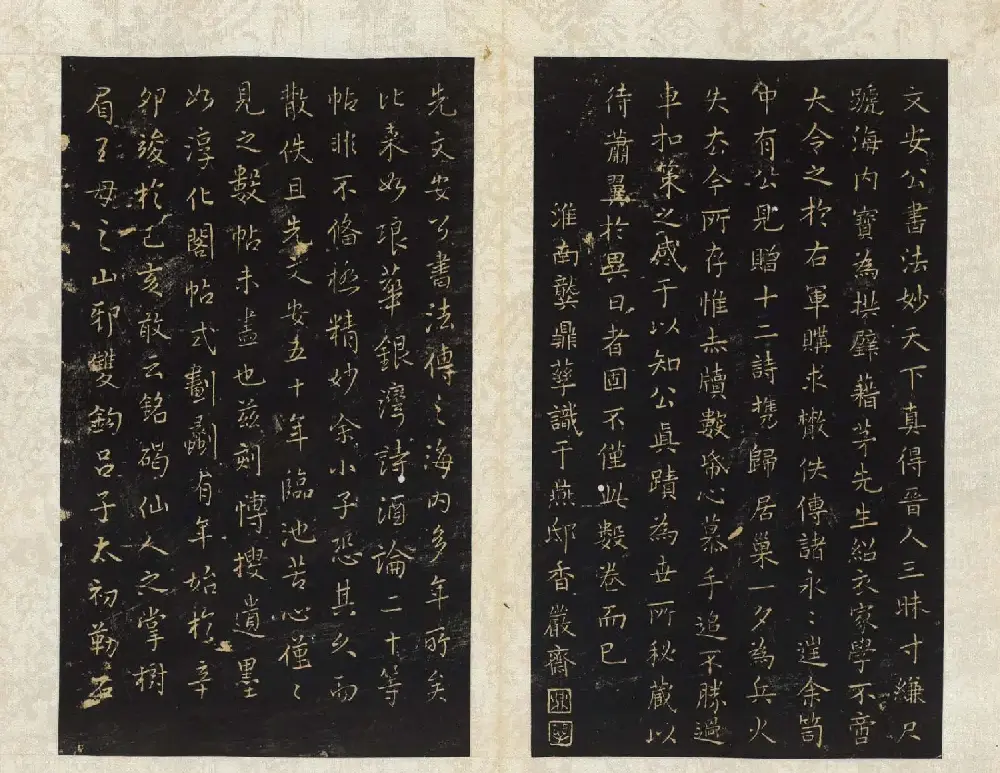 文安公書法妙天下真得晉人三昧寸縑尺
蹏海内寶為拱璧藉茅先生紹衣家學不啻
大令之於右軍購求散佚傳諸永永選余笥
中有公見贈十二詩携歸居巢一夕為兵火
失去今所存惟赤牘數番心慕手追不勝過
車扣策之感于以知公真蹟為世所秘藏以
待蕭翼於異日者固不僅此數卷而已
淮南龔鼎孳識于燕邸香嚴齋
先文安公書法傳之海内多年所矣
比來如琅華館銀灣詩酒論二十等
帖非不備極精妙余小子恐其久而
散佚且先文安五十年臨池苦心僅僅
見之數帖未盡也茲刻博搜遺墨
如淳化閣帖式劃劂有年始於辛
卯竣於己亥敢云銘碣仙人之掌樹
眉王母之山邪雙鉤呂子太初勒石